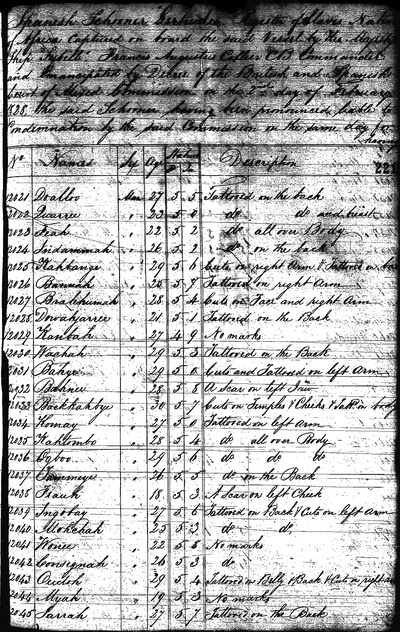 Spanish Schooner Gertrudis, Register of Slaves Natives
of Africa Captured on board the said Vessel by His Majesty's
Ship Sybille, Francis Augustus Collier CB Commander
and Emancipated by Decree of the British and Spanish
Court of Mixed Commission on the day of February
1828 the said Schooner having been pronounced liable to
Condemnation by the said Commission on the same day for
having
No Names Sex Age Stature Description
Ft In 221
12021 Doalloo Man 27 5 5 Tattored on the back
12022 Quarree " 23 5 0 do do and breast
12023 " 22 5 2 do all over Body
12024 Indammah " 26 5 2 do on the back
12025 " 29 5 6 Cuts on right Arm & Tattored on back
12026 Bannah " 25 5 7 Tattored on right arm
12027 Brahhumah " 28 5 4 Cuts on Face and right arm
12028 Dowahjarree " 21 5 1 Tattored on the Back
12029 Kanbah " 27 4 9 No marks
12030 Waahah " 29 5 3 Tattored on the Back
12031 Bahye " 29 5 0 Cuts and Tattored on left Arm
12032 Bahnee " 28 5 8 A Scar on left
12033 Backhahbye " 30 5 7 Cuts on Temples & Cheeks & on body
12034 Komay " 27 5 0 Tattored on left arm
12035 Kahcombo " 28 5 4 do all over Body
12036 Ogboo " 29 5 6 do do do
12037 " 26 5 5 do on the Back
12038 " 18 5 3 A Scar on left Cheek
12039 Ingobay " 27 5 6 Tattored on Back & Cuts on left Arm
12040 Mokehah " 25 5 3 do do
12041 " 22 5 5 No marks
12042 Consignah " 26 5 3 do
12043 " 29 5 4 Tattored on Belly & Back & Cuts on right
12044 Myah " 19 5 3 No marks
12045 Sarrah " 27 5 7 Tattored on the Back